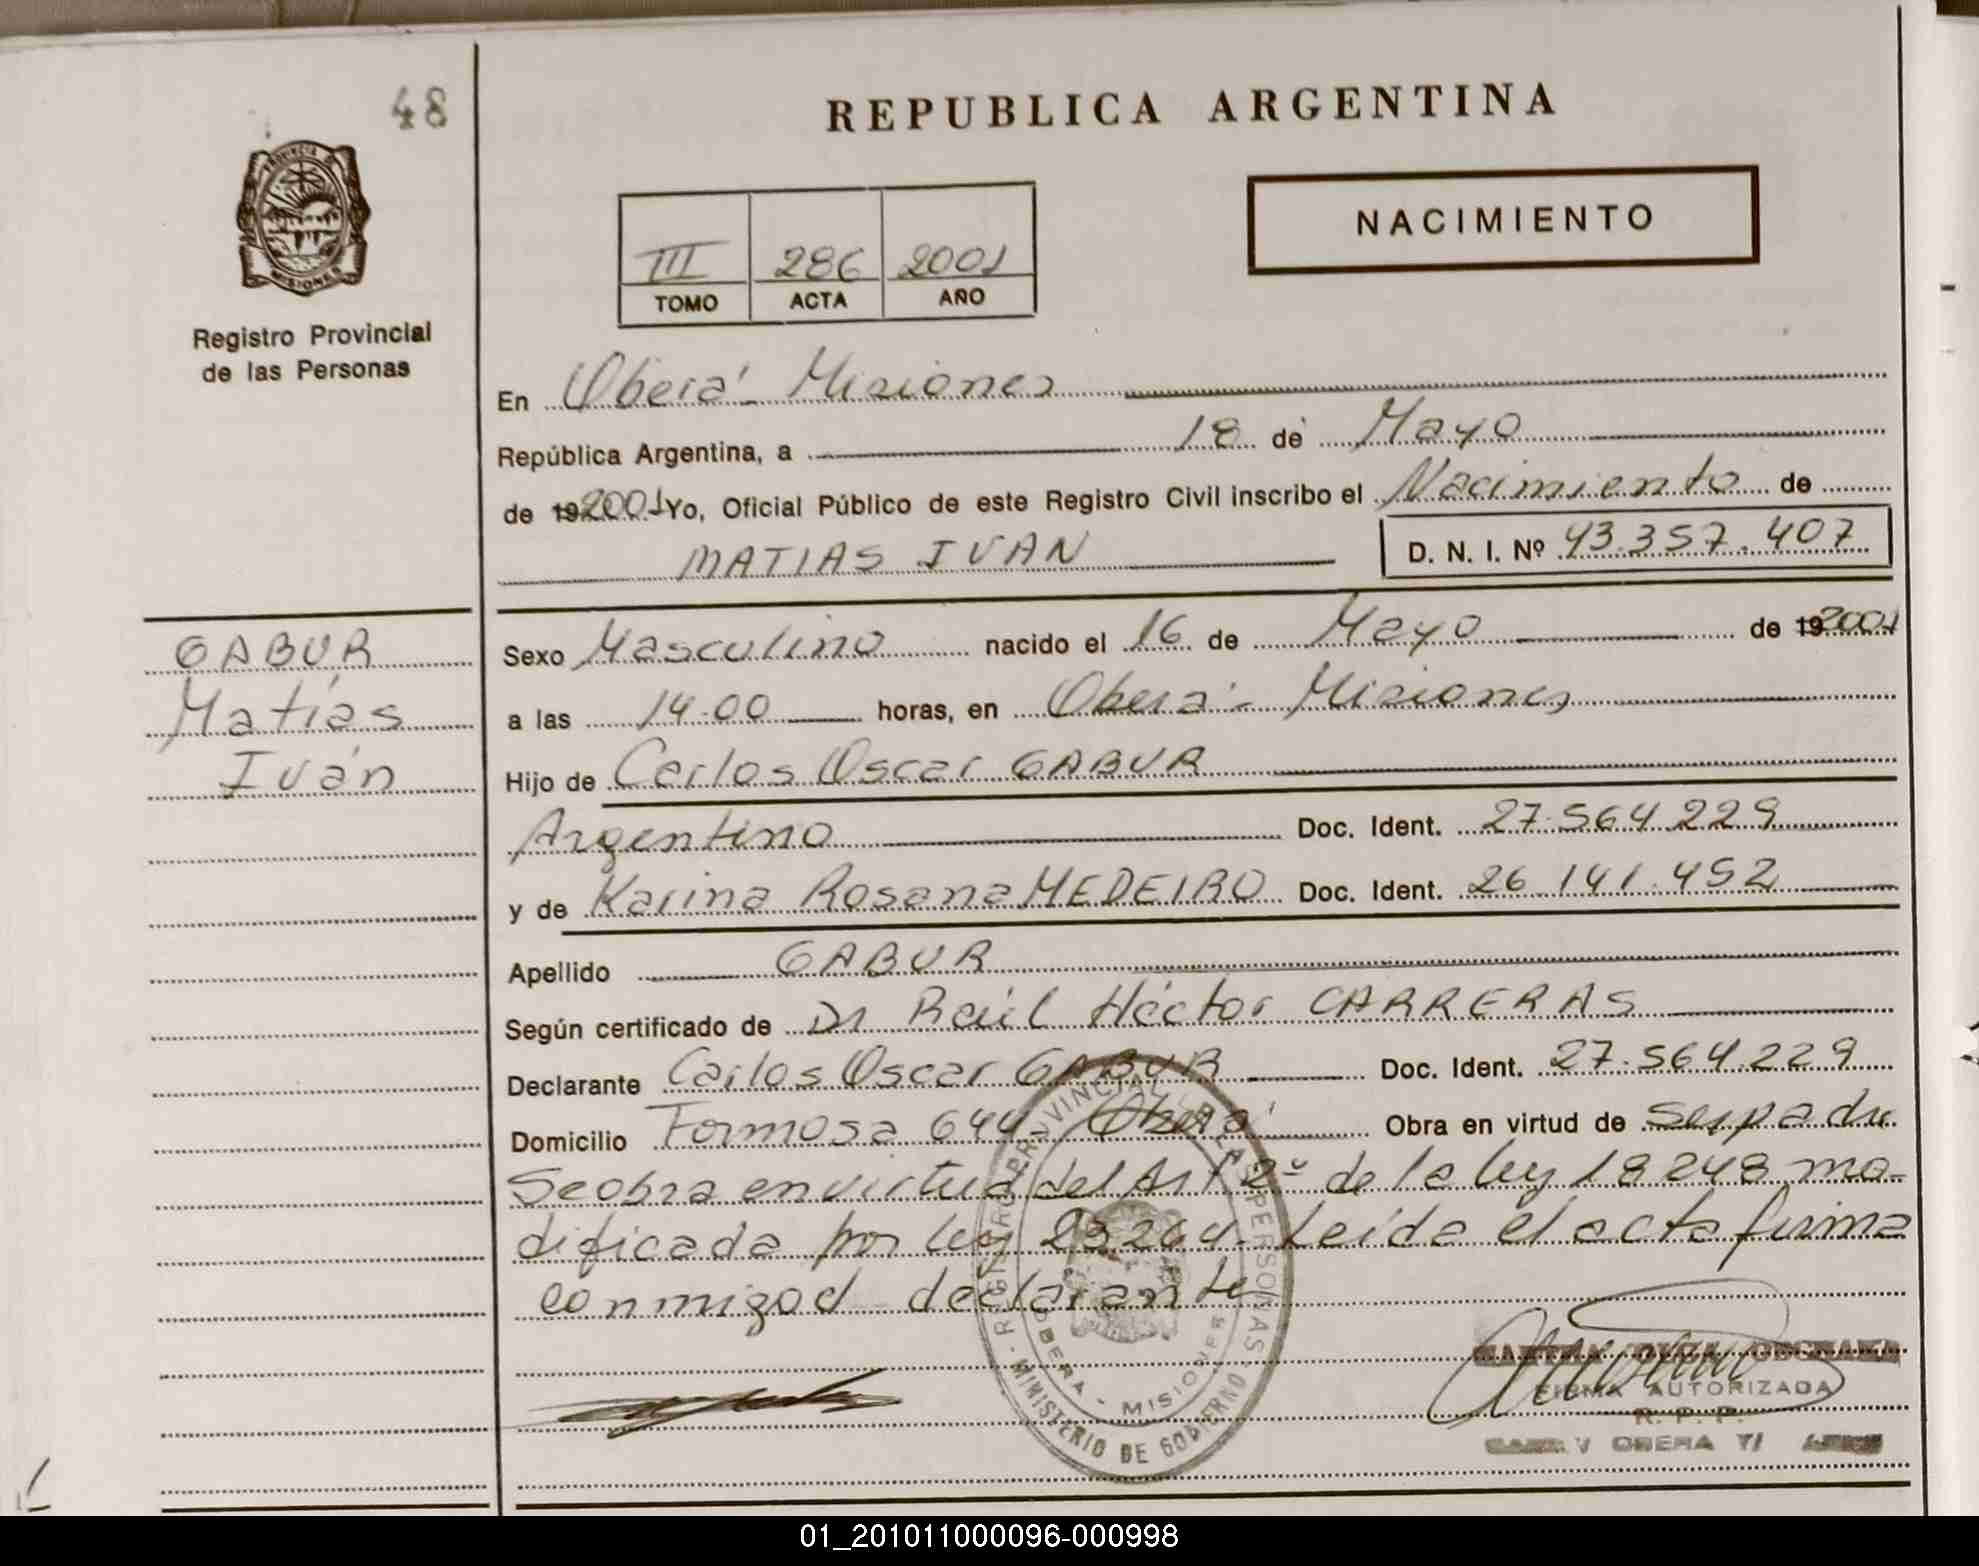 48
REPUBLICA ARGENTINA
PROVINCIA DE
MISIONES
NACIMIENTO
III 286 2001
TOMO ACTA AÑO
Registro Provincial
de las Personas
En Oberá - Misiones
República Argentina, a 18 de Mayo
de 192001 Yo, Oficial Público de este Registro Civil inscribo el Nacimiento de
MATIAS IVAN D. N. I. Nº 43.357.407
GABUR
Matías
Iván
Sexo Masculino nacido el 16 de Mayo de 192001
a las 14.00 horas, en Oberá - Misiones
Hijo de Carlos Oscar GABUR
Argentino Doc. Ident. 27.564.229
y de Karina Rosana MEDEIRO Doc. Ident. 26.141.452
Apellido GABUR
Según certificado de Dr Raúl Héctor CARRERAS
Declarante Carlos Oscar GABUR Doc. Ident. 27.564.229
Domicilio Formosa 644 - Oberá Obra en virtud de ser padre
Se obra en virtud del Art 2º de la ley 18248 mo-
dificada por ley 23.264. Leída el acta firma
conmigo el declarante
REGISTRO PROVINCIAL DE LAS PERSONAS
OBERA - MISIONES
MINISTERIO DE GOBIERNO
FIRMA AUTORIZADA
R. P. P.
OBERA
01_201011000096-000998